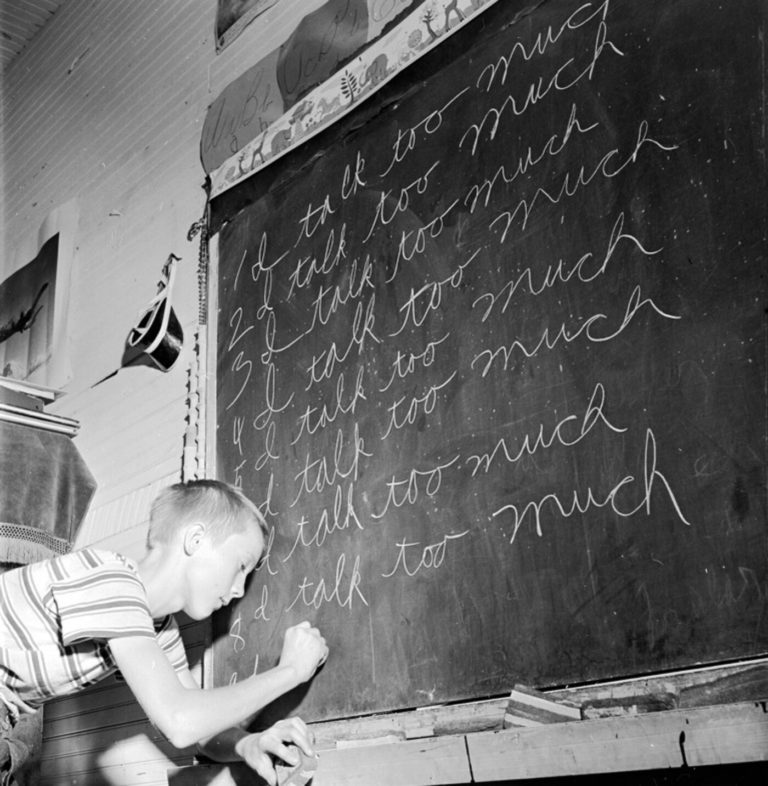 1 I talk too much
2 I talk too much
3 I talk too much
4 I talk too much
5 I talk too much
I talk too much
I talk too much
8 I talk too much